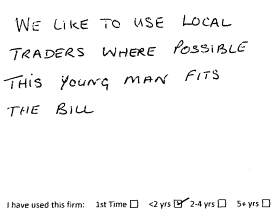 WE LIKE TO USE LOCAL
TRADERS WHERE POSSIBLE
THIS YOUNG MAN FITS
THE BILL
I have used this firm: 1st Time ☐ <2 yrs ☑ 2-4 yrs ☐ 5+ yrs ☐